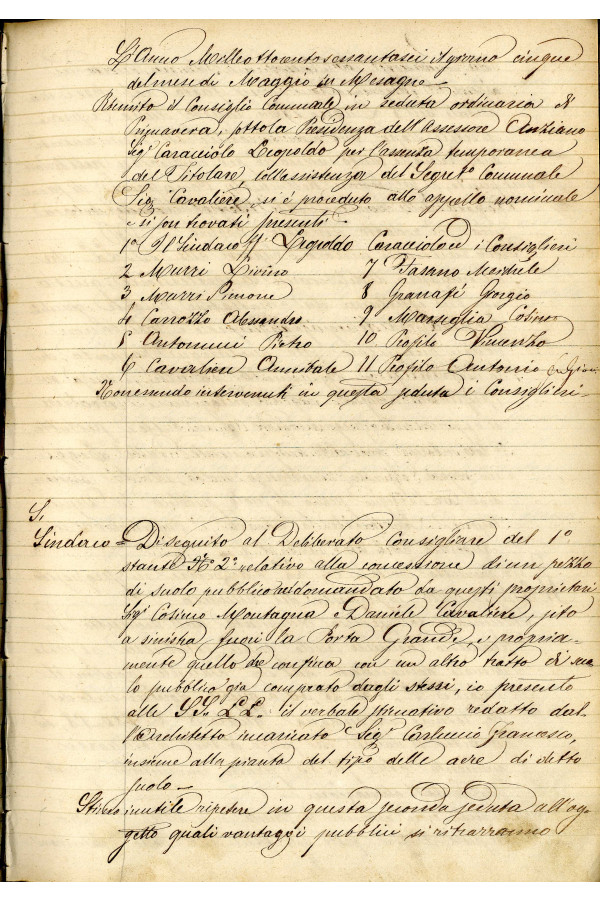 L'Anno Milleottocentosessantasei il giorno cinque
del mese di Maggio in Mesagne
Riunito il Consiglio Comunale in seduta ordinaria di
Primavera, sotto la Presidenza dell'Assessore Anziano
Sigr Caracciolo Leopoldo per l'assenza temporanea
del Titolare, coll'assistenza del Segreto Comunale
Sigr Cavaliere, si è proceduto allo appello nominale
e si son trovati presenti
1o Il Sindaco ff Leopoldo Caracciolo ed i Consiglieri
2 Murri Livino 7 Fasano
3 Murri Simone 8 Granafei Giorgio
4 Carrozzo Alessandro 9 Marseglia Cosimo
5 Antonucci Pietro 10 Profilo Vincenzo
6 Cavaliere Annibale 11 Profilo Antonio
Non essendo intervenuti in questa seduta i Consiglieri
Il
Sindaco = Di seguito al Deliberato Consigliare del 1o
stante No 2o relativo alla concessione di un pezzo
di suolo pubblico addomandato da questi proprietari
Sigri Cosimo Montagna e Daniele Cavaliere, sito
a sinistra fuori la Porta Grande, e propria-
mente quello che confina con un altro tratto di suo-
lo pubblico già comprato dagli stessi, io presento
alle SS. LL. il verbale stimativo redatto dal-
l'Architetto incaricato Sigr Carluccio Francesco,
insieme alla pianta del tipo delle aree di detto
suolo
Stimo inutile ripetere in questa seconda seduta all'og-
getto quali vantaggi pubblici si ritrarranno